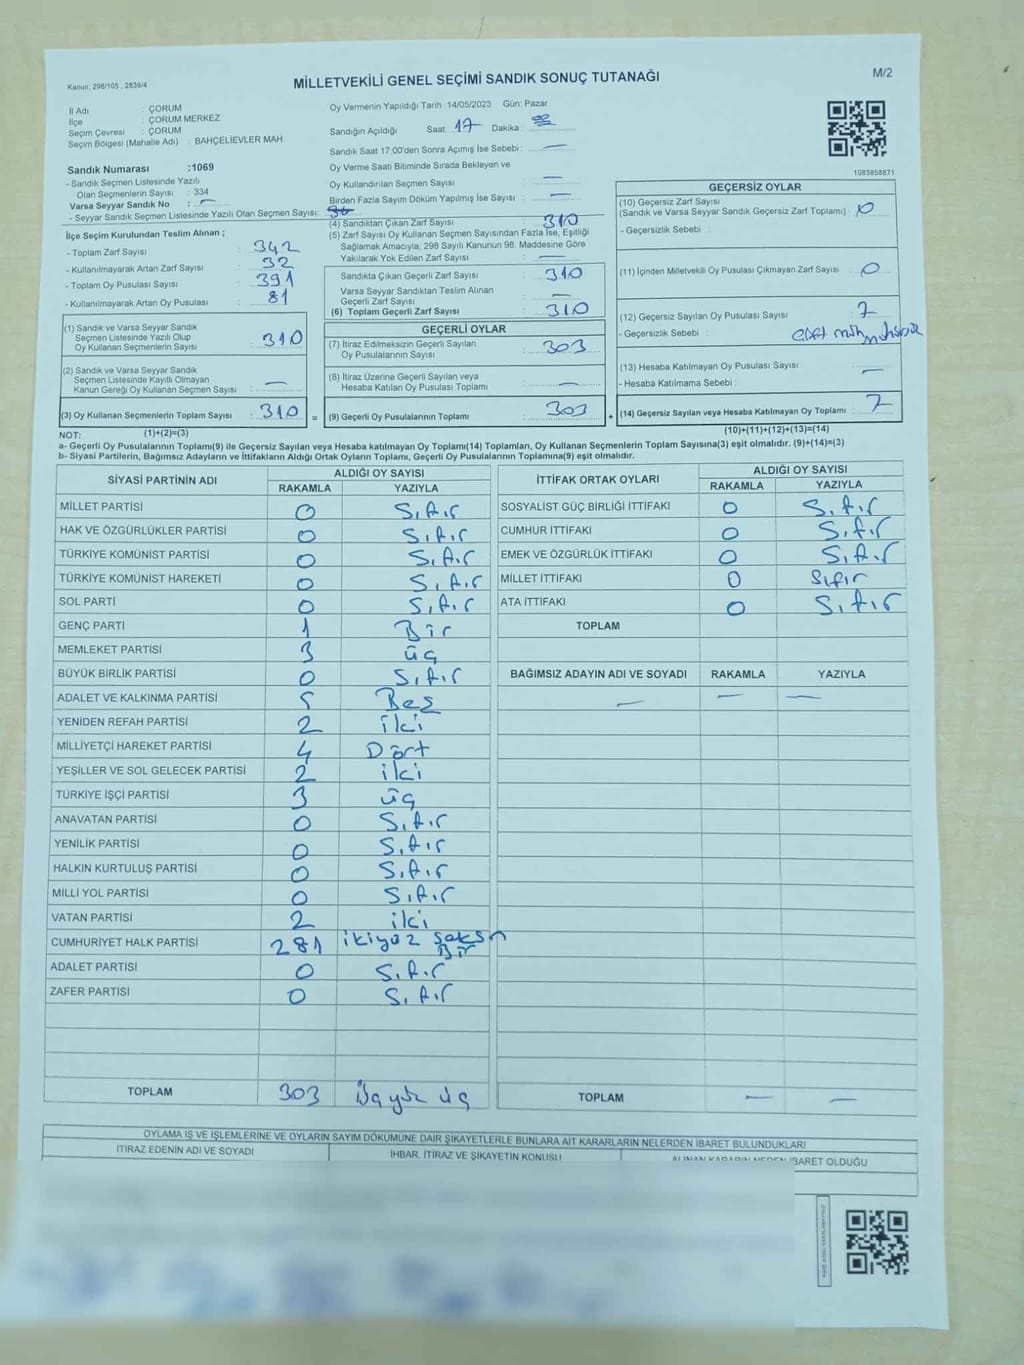 Kanun; 298/105 , 2839/4
MİLLETVEKİLİ GENEL SEÇİMİ SANDIK SONUÇ TUTANAĞI
M/2
İl Adı : ÇORUM
İlçe : ÇORUM MERKEZ
Seçim Çevresi : ÇORUM
Seçim Bölgesi (Mahalle Adı) : BAHÇELİEVLER MAH.
Sandık Numarası :1069
- Sandık Seçmen Listesinde Yazılı
Olan Seçmenlerin Sayısı : 334
Varsa Seyyar Sandık No : —
- Seyyar Sandık Seçmen Listesinde Yazılı Olan Seçmen Sayısı:
İlçe Seçim Kurulundan Teslim Alınan ;
- Toplam Zarf Sayısı : 342
- Kullanılmayarak Artan Zarf Sayısı : 32
- Toplam Oy Pusulası Sayısı : 391
- Kullanılmayarak Artan Oy Pusulası : 81
(1) Sandık ve Varsa Seyyar Sandık
Seçmen Listesinde Yazılı Olup
Oy Kullanan Seçmenlerin Sayısı : 310
(2) Sandık ve Varsa Seyyar Sandık
Seçmen Listesinde Kayıtlı Olmayan
Kanun Gereği Oy Kullanan Seçmen Sayısı : —
(3) Oy Kullanan Seçmenlerin Toplam Sayısı : 310 =
(1)+(2)=(3)
Oy Vermenin Yapıldığı Tarih :14/05/2023 Gün: Pazar
Sandığın Açıldığı Saat : 17 Dakika :
Sandık Saat 17:00'den Sonra Açımış İse Sebebi : —
Oy Verme Saati Bitiminde Sırada Bekleyen ve
Oy Kullandırılan Seçmen Sayısı : —
Birden Fazla Sayım Döküm Yapılmış İse Sayısı : —
(4) Sandıktan Çıkan Zarf Sayısı : 310
(5) Zarf Sayısı Oy Kullanan Seçmen Sayısından Fazla İse, Eşitliği
Sağlamak Amacıyla, 298 Sayılı Kanunun 98. Maddesine Göre
Yakılarak Yok Edilen Zarf Sayısı : —
Sandıkta Çıkan Geçerli Zarf Sayısı : 310
Varsa Seyyar Sandıktan Teslim Alınan
Geçerli Zarf Sayısı : —
(6) Toplam Geçerli Zarf Sayısı : 310
GEÇERLİ OYLAR
(7) İtiraz Edilmeksizin Geçerli Sayılan
Oy Pusulalarının Sayısı : 303
(8) İtiraz Üzerine Geçerli Sayılan veya
Hesaba Katılan Oy Pusulası Toplamı : —
(9) Geçerli Oy Pusulalarının Toplamı : 303 +
1083858871
GEÇERSİZ OYLAR
(10) Geçersiz Zarf Sayısı
(Sandık ve Varsa Seyyar Sandık Geçersiz Zarf Toplamı) : 0
- Geçersizlik Sebebi :
(11) İçinden Milletvekili Oy Pusulası Çıkmayan Zarf Sayısı : 0
(12) Geçersiz Sayılan Oy Pusulası Sayısı : 7
- Geçersizlik Sebebi :
(13) Hesaba Katılmayan Oy Pusulası Sayısı : —
- Hesaba Katılmama Sebebi :
(14) Geçersiz Sayılan veya Hesaba Katılmayan Oy Toplamı : 7
(10)+(11)+(12)+(13)=(14)
NOT:
a- Geçerli Oy Pusulalarının Toplamı(9) ile Geçersiz Sayılan veya Hesaba katılmayan Oy Toplamı(14) Toplamları, Oy Kullanan Seçmenlerin Toplam Sayısına(3) eşit olmalıdır. (9)+(14)=(3)
b- Siyasi Partilerin, Bağımsız Adayların ve İttifakların Aldığı Ortak Oyların Toplamı, Geçerli Oy Pusulalarının Toplamına(9) eşit olmalıdır.
SİYASİ PARTİNİN ADI ALDIĞI OY SAYISI
RAKAMLA YAZIYLA
MİLLET PARTİSİ 0 Sıfır
HAK VE ÖZGÜRLÜKLER PARTİSİ 0 Sıfır
TÜRKİYE KOMÜNİST PARTİSİ 0 Sıfır
TÜRKİYE KOMÜNİST HAREKETİ 0 Sıfır
SOL PARTİ 0 Sıfır
GENÇ PARTİ 1 Bir
MEMLEKET PARTİSİ 3 üç
BÜYÜK BİRLİK PARTİSİ 0 Sıfır
ADALET VE KALKINMA PARTİSİ 5 Beş
YENİDEN REFAH PARTİSİ 2 iki
MİLLİYETÇİ HAREKET PARTİSİ 4 Dört
YEŞİLLER VE SOL GELECEK PARTİSİ 2 iki
TÜRKİYE İŞÇİ PARTİSİ 3 üç
ANAVATAN PARTİSİ 0 Sıfır
YENİLİK PARTİSİ 0 Sıfır
HALKIN KURTULUŞ PARTİSİ 0 Sıfır
MİLLİ YOL PARTİSİ 0 Sıfır
VATAN PARTİSİ 2 iki
CUMHURİYET HALK PARTİSİ 281 ikiyüz seksn
Bir
ADALET PARTİSİ 0 Sıfır
ZAFER PARTİSİ 0 Sıfır
TOPLAM 303 Üçyüz üç
İTTİFAK ORTAK OYLARI ALDIĞI OY SAYISI
RAKAMLA YAZIYLA
SOSYALİST GÜÇ BİRLİĞİ İTTİFAKI 0 Sıfır
CUMHUR İTTİFAKI 0 Sıfır
EMEK VE ÖZGÜRLÜK İTTİFAKI 0 Sıfır
MİLLET İTTİFAKI 0 Sıfır
ATA İTTİFAKI 0 Sıfır
TOPLAM
BAĞIMSIZ ADAYIN ADI VE SOYADI RAKAMLA YAZIYLA
— — —
TOPLAM — —
OYLAMA İŞ VE İŞLEMLERİNE VE OYLARIN SAYIM DÖKÜMÜNE DAİR ŞİKAYETLERLE BUNLARA AİT KARARLARIN NELERDEN İBARET BULUNDUKLARI
İTİRAZ EDENİN ADI VE SOYADI İHBAR, İTİRAZ VE ŞİKAYETİN KONUSU ALINAN KARARIN NEDEN İBARET OLDUĞU